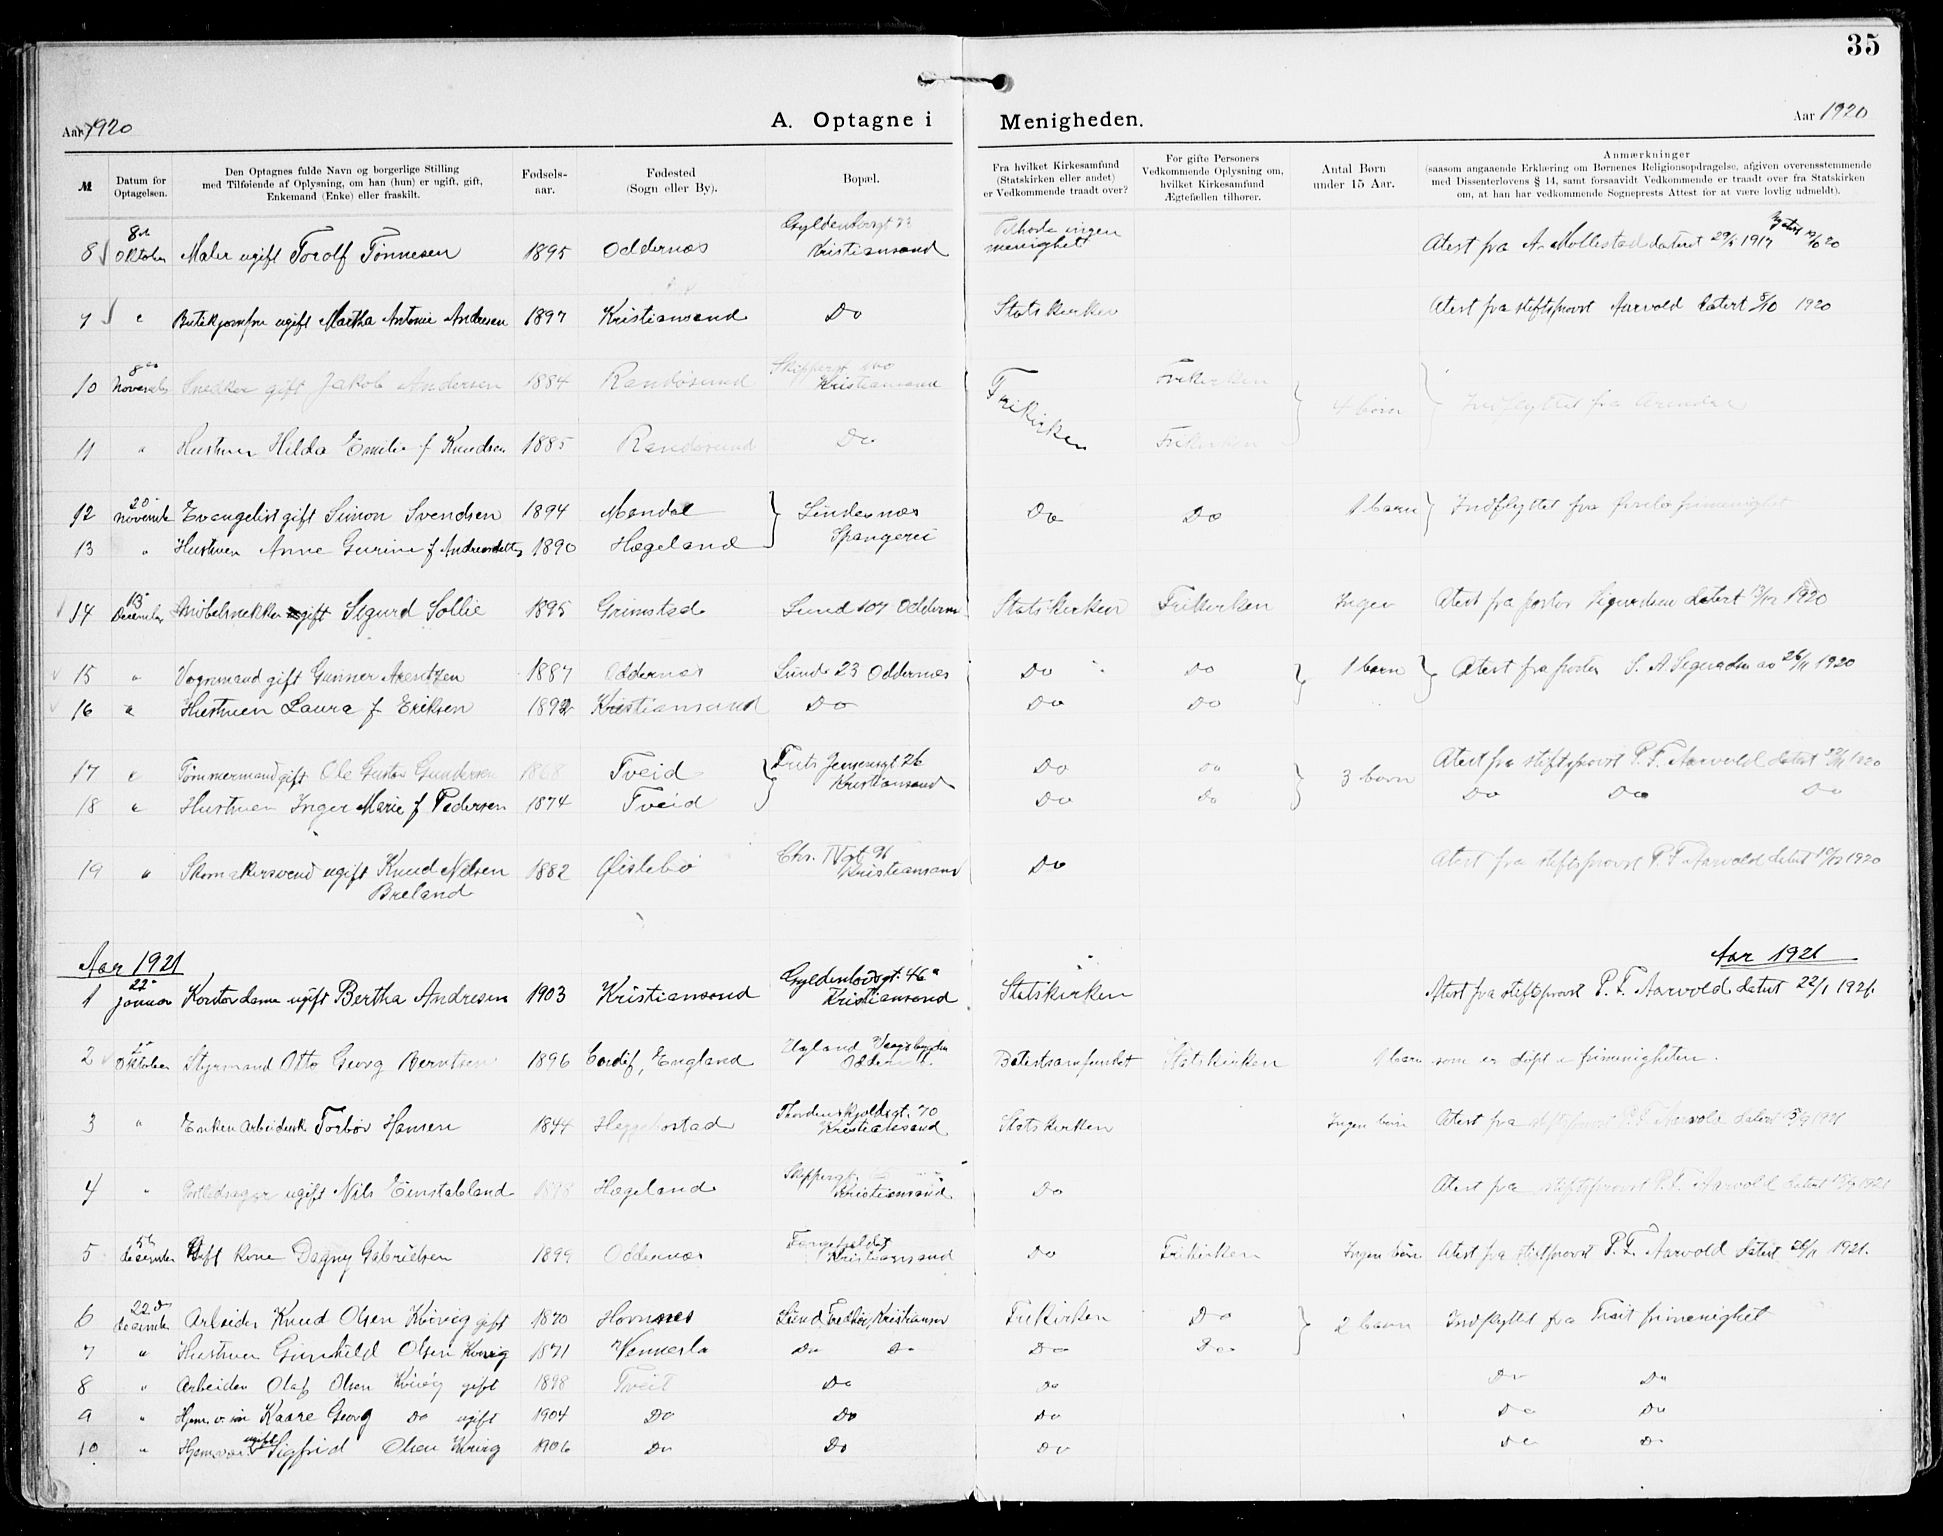 35
Aar 1920 A. Optagne i Menigheden. Aar 1920
№ Datum for Optagelsen. Den Optagnes fulde Navn og borgerlige Stilling med Tilføiende af Oplysning, om han (hun) er ugift, gift, Enkemand (Enke) eller fraskilt. Fødselsaar. Fødested (Sogn eller By). Bopæl. Fra hvilket Kirkesamfund (Statskirken eller andet) er Vedkommende traadt over? For gifte Personers Vedkommende Oplysning om, hvilket Kirkesamfund Ægtefællen tilhører. Antal Børn under 15 Aar. Anmærkninger (saasom angaaende Erklæring om Børnenes Religionsopdragelse, afgiven overensstemmende med Dissenterlovens § 14, samt forsaavidt Vedkommende er traadt over fra Statskirken om, at han har vedkommende Sogneprests Attest for at være lovlig udmeldt).
8 8de Oktober Maler ugift Torolf Tønnesen 1895 Oddernæs Kristiansand Tilhørte ingen menighet Atest fra A. Mollestad dateret 29/5 1917
9 " ugift Martha Antonie Andersen 1897 Kristiansand Do Statskirken Atest fra stiftsprovst Aarvold datert 8/10 1920
10 8de November Snedker gift Jakob Andersen 1884 Randøsund Skippergt Kristiansand Frikirken Frikirken 4 børn Indflyttet fra Arendal
11 " Hustruen Hilda Emilie f Knudsen 1885 Randøsund Do Frikirken
12 20 November Evangelist gift Simon Svendsen 1894 Mandal Lindesnæs Do Do 1 barn Indflyttet fra frimenighet
13 " Hustruen Anne Gurine f Andreasdatter 1890 Hægeland Spangerei
14 13 December Møbelsnekker gift Sigurd Sollie 1895 Grimstad Lund 107 Oddernæs Statskirken Frikirken Ingen Atest fra pastor Sigurdsen datert 13/12 1920
15 " Vognmand gift Gunner Arentzen 1887 Oddernæs Lund 23 Oddernæs Do Do 1 barn Atest fra pastor S. A Sigurdsen av 26/11 1920
16 " Hustruen Laura f Eriksen 1892 Kristiansand Do Do Do
17 " Tømmermand gift Ole Gustav Gundersen 1868 Tveid Frits Jensensgt 26 Kristiansand Do Do 3 børn Atest fra stiftsprovst P. F. Aarvold datert 1920
18 " Hustruen Inger Marie f Pedersen 1874 Tveid Do Do Do Do Do
19 " Skomakersvend ugift Knud Nilsen Breland 1882 Øislebø Chr. IVgt 96 Kristiansand Do Atest fra stiftsprovst P. F Aarvold datert 10/12 1920
Aar 1921 Aar 1921
1 22 januar Kontordame ugift Bertha Andresen 1903 Kristiansand Gyldenløvsgt. 46 Kristiansand Statskirken Atest fra stiftsprovst P. F. Aarvold datert 22/1 1921.
2 Oktober Styrmand Otto Georg Berntsen 1896 Cardif, England Vaagsbygden Statskirken 1 barn som er døpt i frimenigheten.
3 " Enken Torbør Hansen 1844 Heggebostad Thordenskjoldsgt. 70 Kristiansand Statskirken Ingen børn Atest fra stiftsprovst P. F Aarvold datert 1921
4 " ugift Nils Einstabland 1898 Hægeland Skippergt. Kristiansand Do Atest fra stiftsprovst P. F. Aarvold datert 1921
5 5te desember Gift kone Dagny Gabrielsen 1899 Oddernæs Kristiansand Do Frikirken Ingen børn Atest fra stiftprovst P. F. Aarvold datert 26/11 1921.
6 22de desember Arbeider Knud Olsen Kvivig gift 1870 Hornnes Lund Kristiansand Frikirken Do 2 barn Indflyttet fra Tveit frimenighet
7 " Hustruen Gunhild Olsen Kvivig 1871 Vennesla Do Do Do Do
8 " Arbeider Olaf Olsen Kvivig gift 1898 Tveit Do Do Do Do
9 " Kaare Georg Do ugift 1904 Do Do Do Do Do
10 " ugift Sigfrid Olsen Kvivig 1906 Do Do Do Do Do